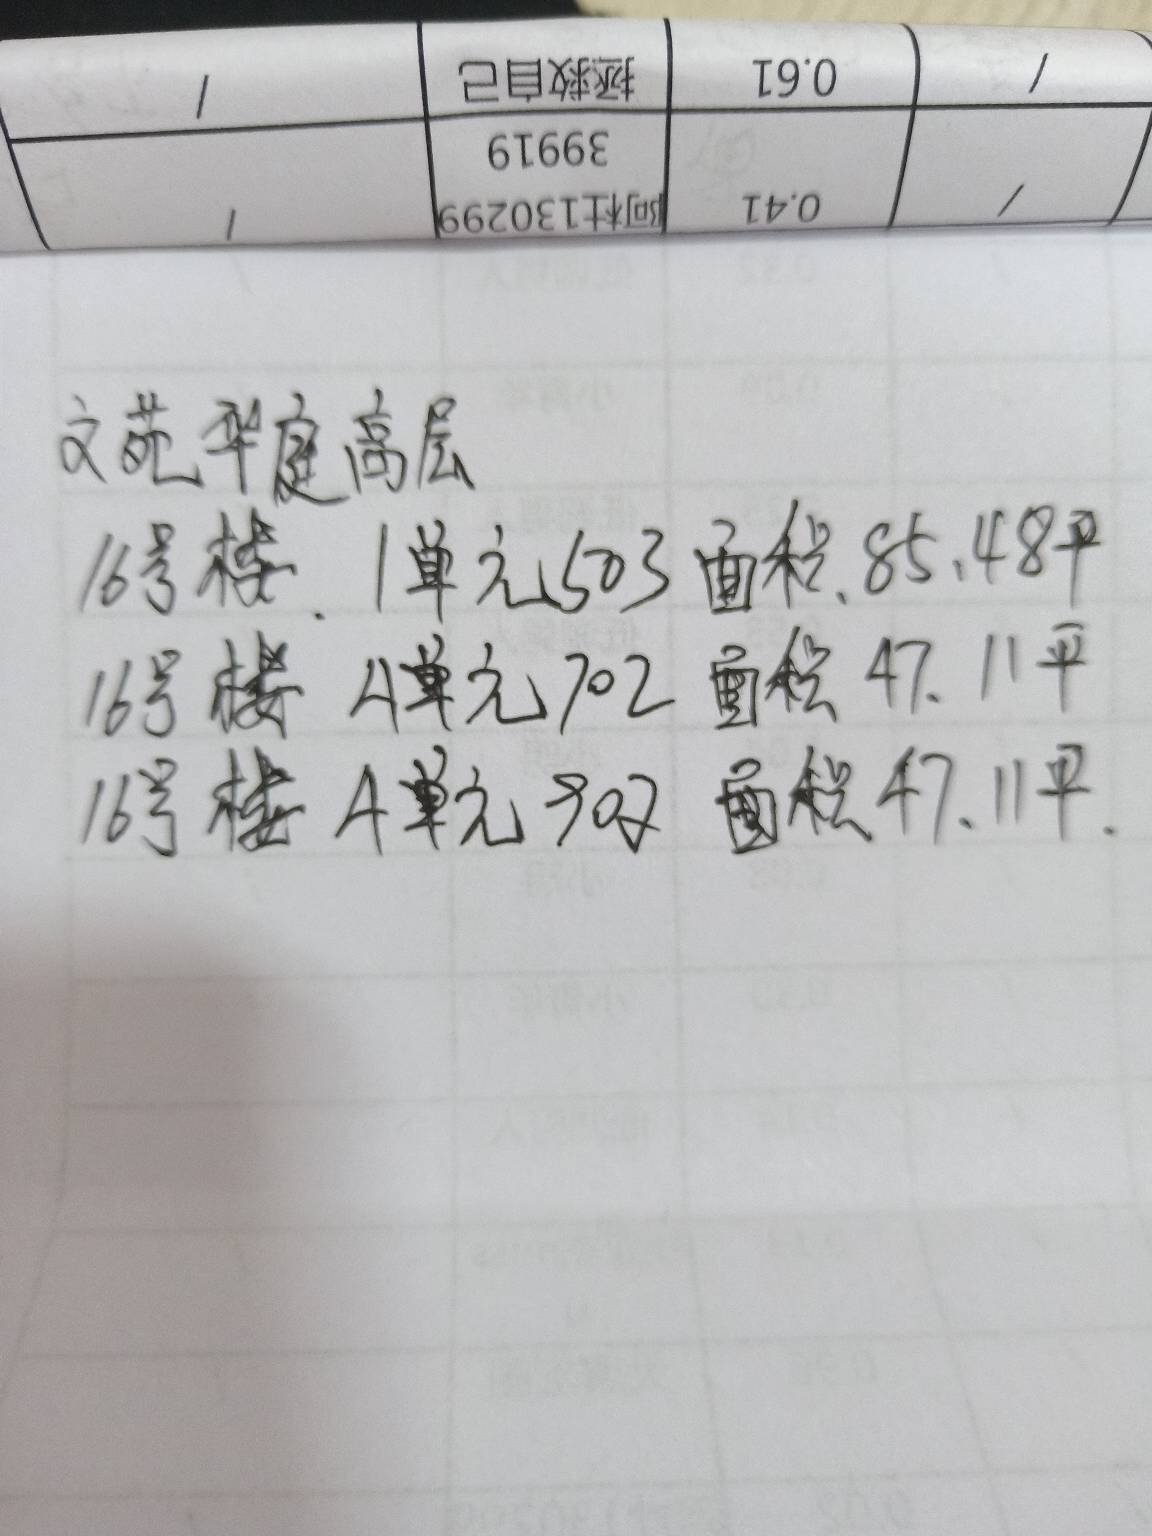 / 0.61 拯救自己 /
39919
/ 0.41 阿杜130299 /
文苑华庭高层
16号楼. 1单元503 面积.85.48平
16号楼 4单元702 面积47.11平
16号楼 4单元902 面积47.11平.